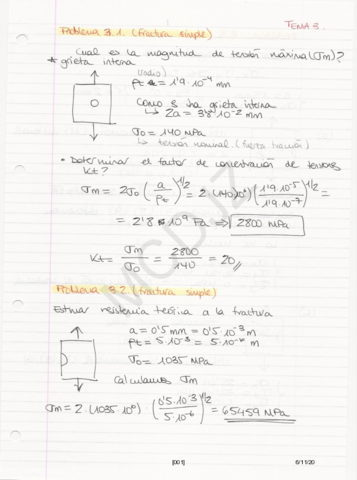 TEMA 3.
Problema 3.1. (fractura simple)
Cual es la magnitud de tensión máxima (σm)?
* grieta interna
(radio)
ρt = 1'9·10⁻⁴ mm
Como es una grieta interna
↳ 2a = 3'8·10⁻² mm
σo = 140 MPa
↳ tensión nominal (fuerza tracción)
• Determinar el factor de concentración de tensiones
Kt?
σm = 2σo (a/ρt)^1/2 = 2·(140·10⁶) (1'9·10⁻⁵/1'9·10⁻⁷)^1/2 =
= 2'8·10⁹ Pa ⇒ 2800 MPa
Kt = σm/σo = 2800/140 = 20 //
Problema 3.2. (fractura simple)
Estimar resistencia teórica a la fractura
a = 0'5 mm = 0'5·10⁻³ m
ρt = 5·10⁻³ = 5·10⁻⁶ m
σo = 1035 MPa
Calculamos σm
σm = 2·(1035·10⁶) (0'5·10⁻³/5·10⁻⁶)^1/2 =
MCDJZ
[001]
6/11/20